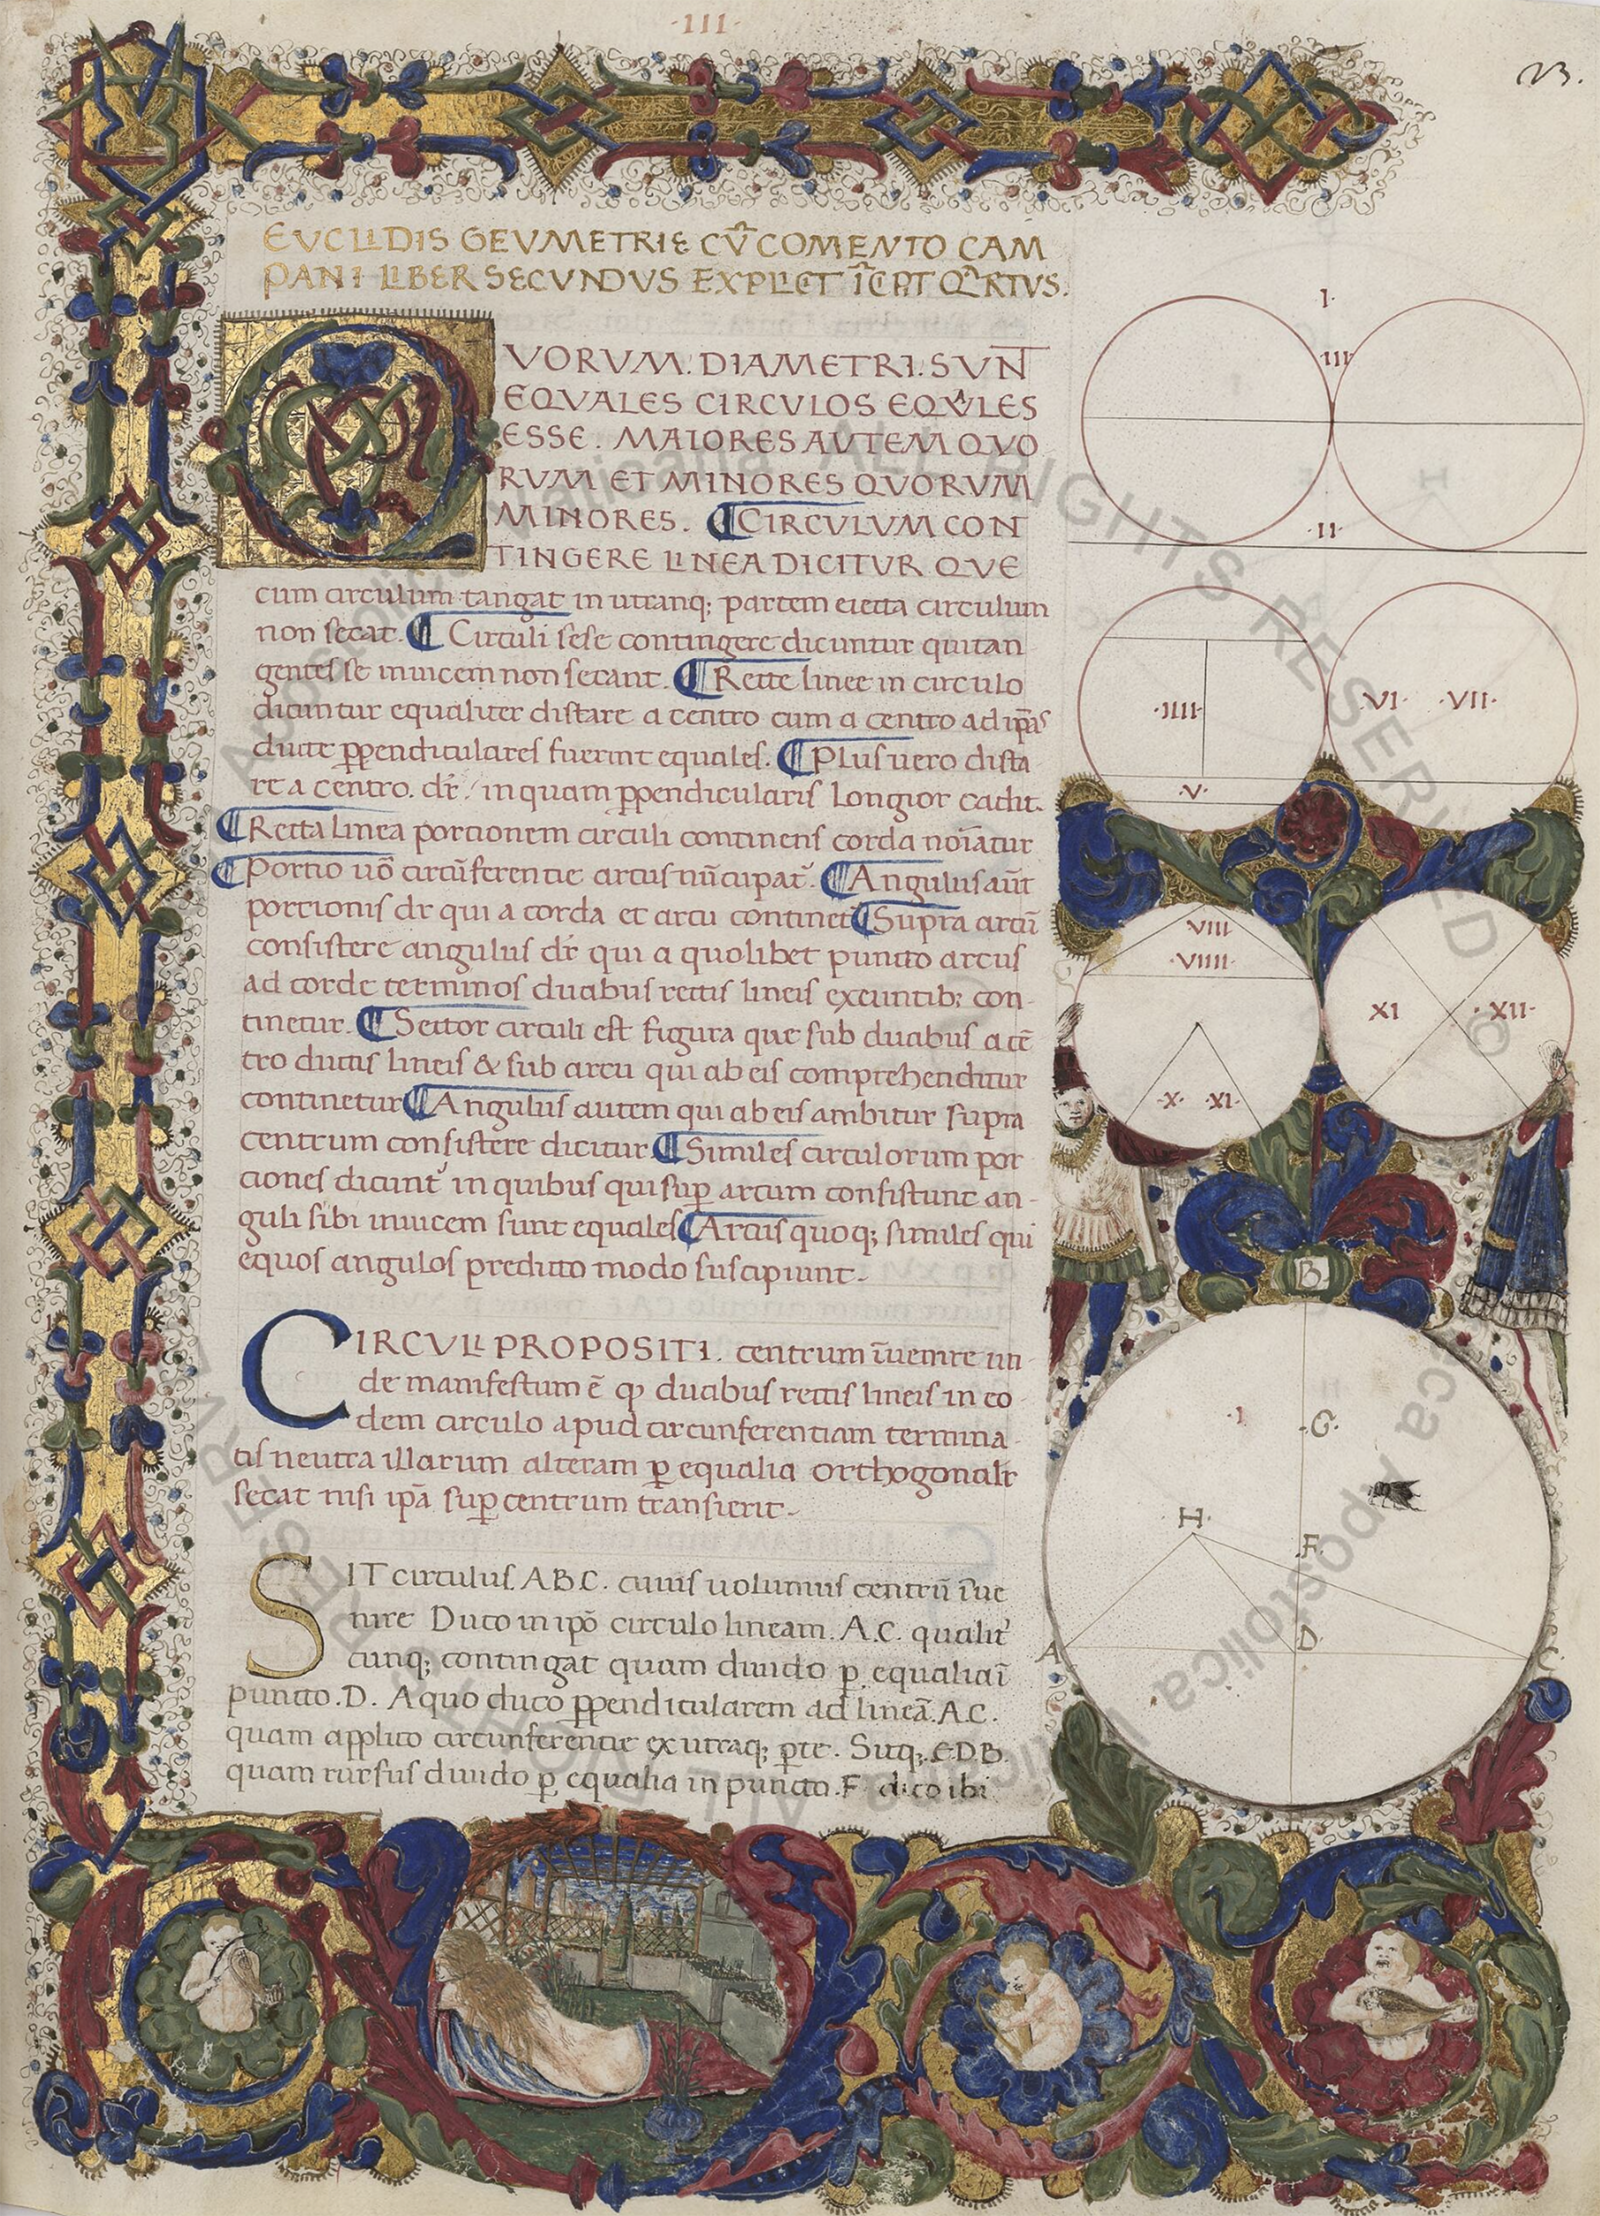 ·III·
23.
EVCLIDIS GEVMETRIE CV̄ COMENTO CAM
PANI LIBER SECVNDVS EXPLICT ĪCPIT QRTVS.
QVORVM. DIAMETRI. SVNT
EQVALES CIRCVLOS EQVALES
ESSE. MAIORES AVTEM QVO
RVM ET MINORES QVORVM
MINORES. ¶ CIRCVLVM CON
TINGERE LINEA DICITVR QVE
cum circulum tangat in utranq; partem eiecta circulum
non secat. ¶ Circuli sese contingere dicuntur qui tan
gentes se inuicem non secant. ¶ Recte linee in circulo
dicuntur equaliter distare a centro cum a centro ad ip̄as
ducte p̱pendiculares fuerint equales. ¶ Plus uero dista
re a centro. dr̄ / in quam p̱pendicularis longior cadit.
¶ Recta linea portionem circuli continens corda noīatur
¶ Portio uō circūferentie arcus nūcupat̄. ¶ Angulus aūt
portionis dr̄ qui a corda et arcu continet̄ ¶ Supra arcū
consistere angulus dr̄ qui a quolibet puncto arcus
ad corde terminos duabus rectis lineis exeuntib; con-
tinetur. ¶ Sector circuli est figura que sub duabus a cē
tro ductis lineis & sub arcu qui ab eis comprehenditur
continetur ¶ Angulus autem qui ab eis ambitur supra
centrum consistere dicitur ¶ Similes circulorum por
ciones dicunt̄ in quibus qui sup̱ arcum consistunt an-
guli sibi inuicem sunt equales ¶ Arcus quoq; similes qui
equos angulos predicto modo suscipiunt-
CIRCVLI PROPOSITI. centrum īuenire un
de manifestum ē ꝙ duabus rectis lineis in eo
dem circulo apud circunferentiam termina
tis neutra illarum alteram p̱ equalia orthogonalr̄
secat nisi ip̄a sup̱ centrum transierit-
SIT circulus. A B C. cuius uolumus centrū īue
nire Duco in ip̄o circulo lineam. A.C. qualit̄
cunq; contingat quam diuido p̱ equalia ī
puncto .D. A quo duco p̱pendicularem ad lineā. A.C.
quam applico circunferentie ex utraq; p̱te. Sitq; .E.D.B.
quam rursus diuido p̱ equalia in puncto .F. dico ibi
I.
III
II
·IIII·
·V·
VI· ·VII·
VIII
·VIIII·
·X· XI·
XI ·XII·
B
·I
·G·
H
·F·
A
D
C
Apostolica Vaticana ALL RIGHTS RESERVED ©